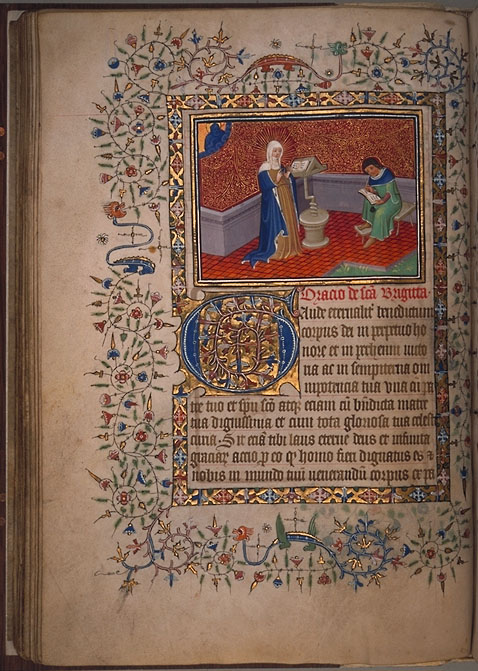 Oracio de scā Brigitta.
Gaude eternalit̄ benedictum
corpus dei in perpetuo ho
nore et in perhenni victo
ria ac in sempiterna om
nipotencia tua vna cū pa
tre tuo et spū scō atq̄ eciam cū bn̄dicta matre
tua dignissima et cum tota gloriosa tua celesti
curia. Sit eciā tibi laus eterne deus et infinita
graciaꝝ accio ꝓ eo qͩ homo fieri dignatus es ⁊
nobis in mundo tuū venerandū corpus ex